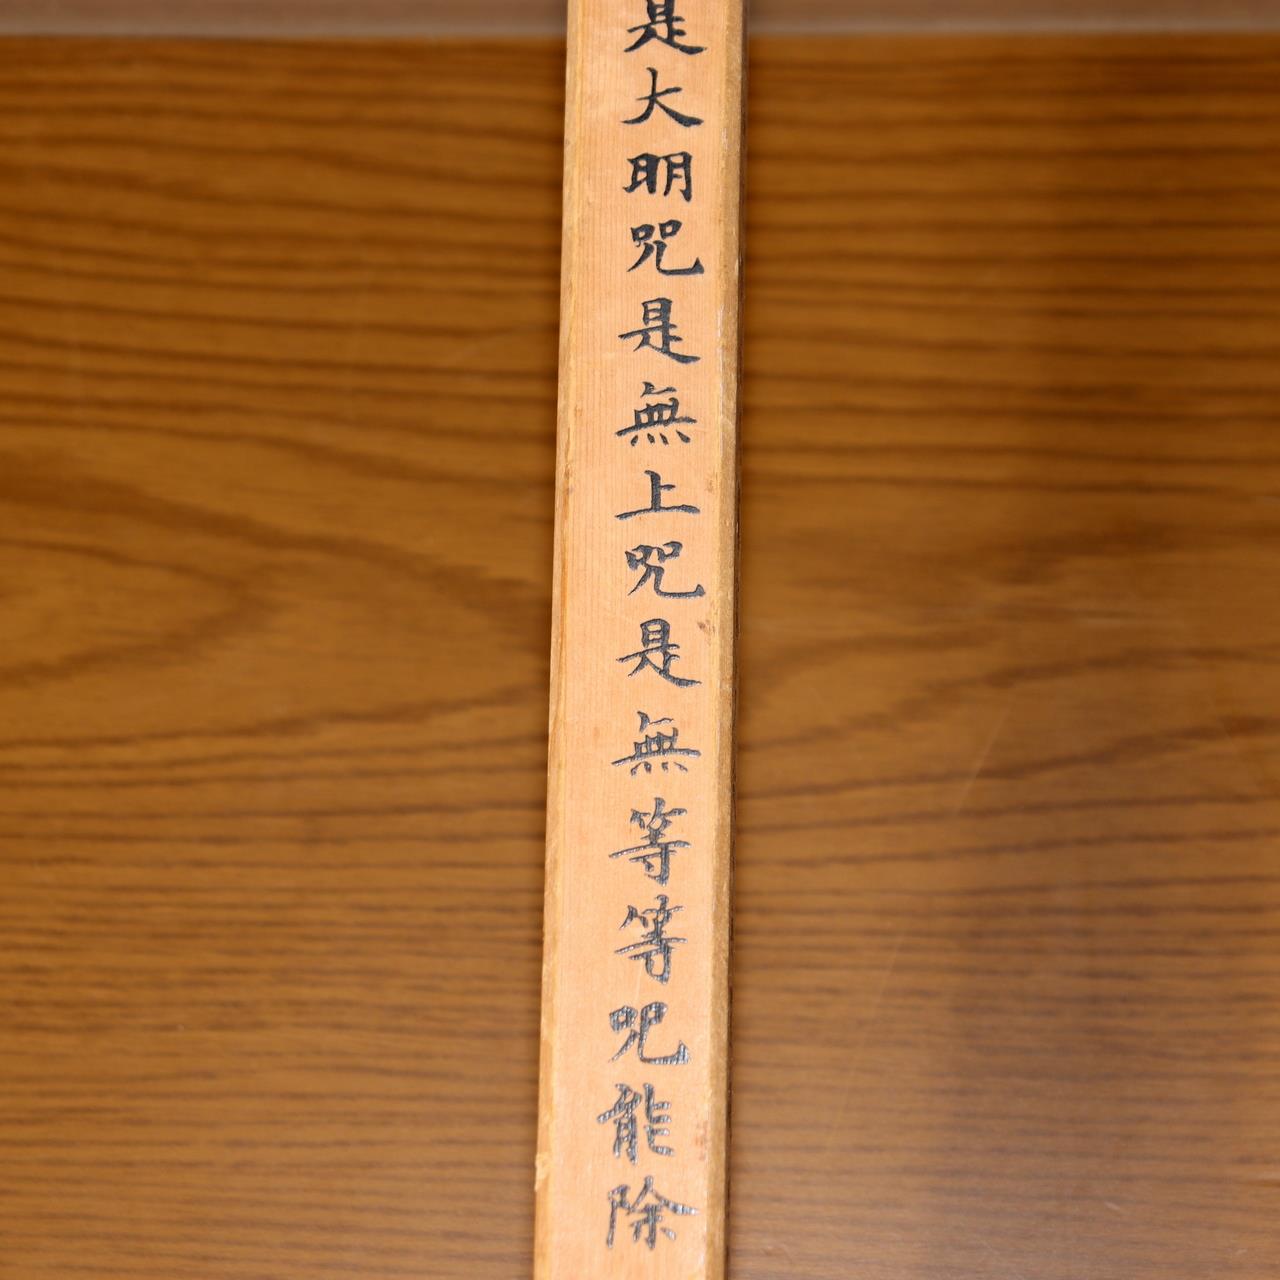 是大明咒是無上咒是無等等咒能除